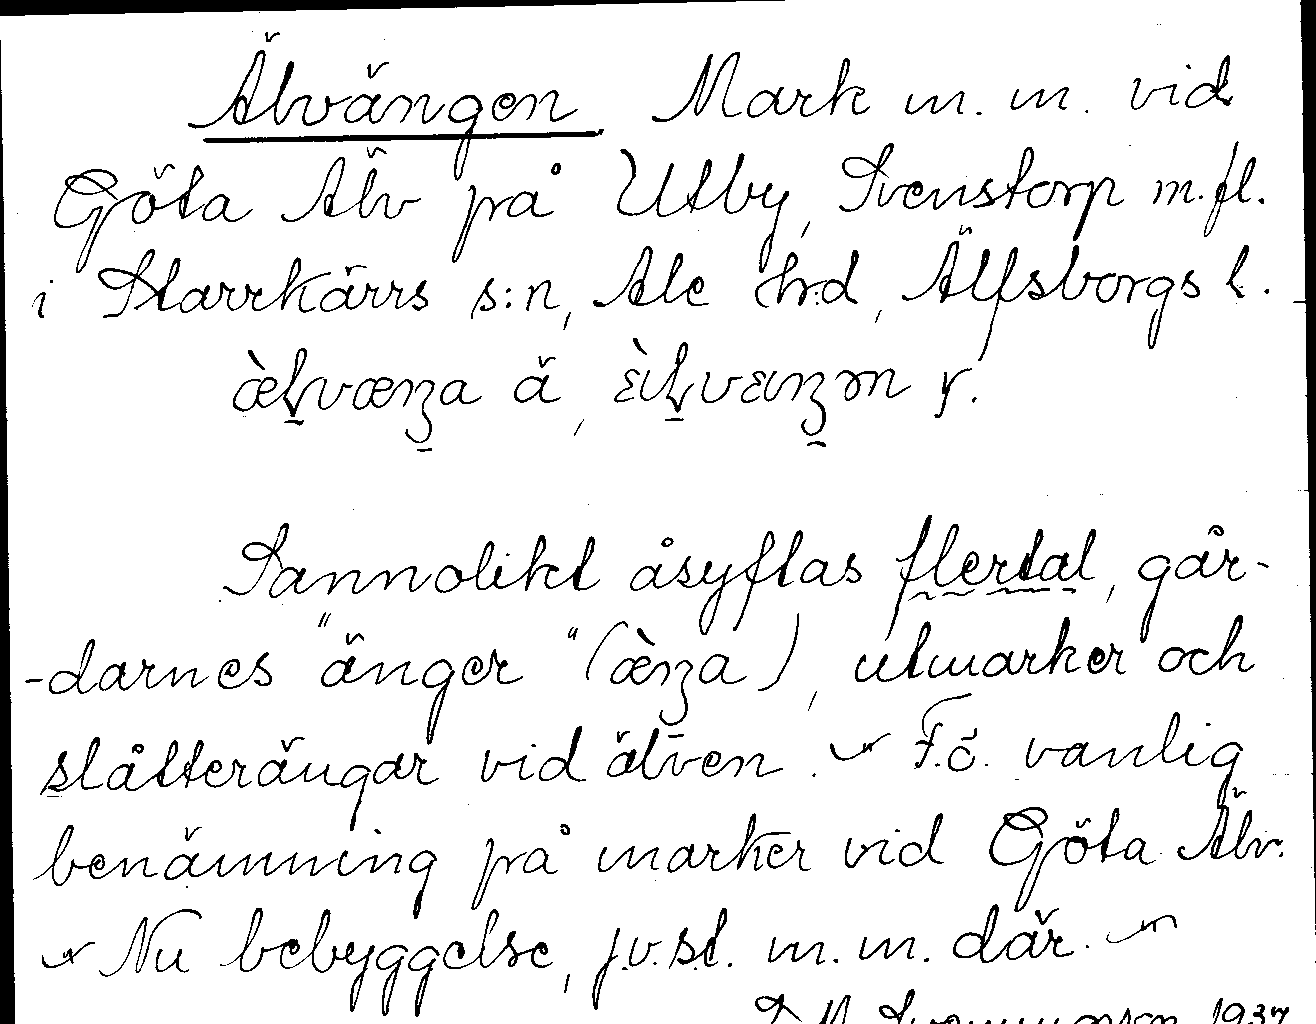 Älvängen Mark m.m. vid
Göta Älv på Utby, Svenstorp m.fl.
i Starrkärrs s:n, Ale h:d, Älfsborgs l.
æ̀ɫvæŋa ä, ɛ̀ɫvɛŋən y.
Sannolikt åsyftas flertal, går-
-darnes "änger" (æ̀ŋa), utmarker och
slåtterängar vid älven. F.ö. vanlig
benämning på marker vid Göta Älv.
Nu bebyggelse, j.v.st. m.m. där.
1937